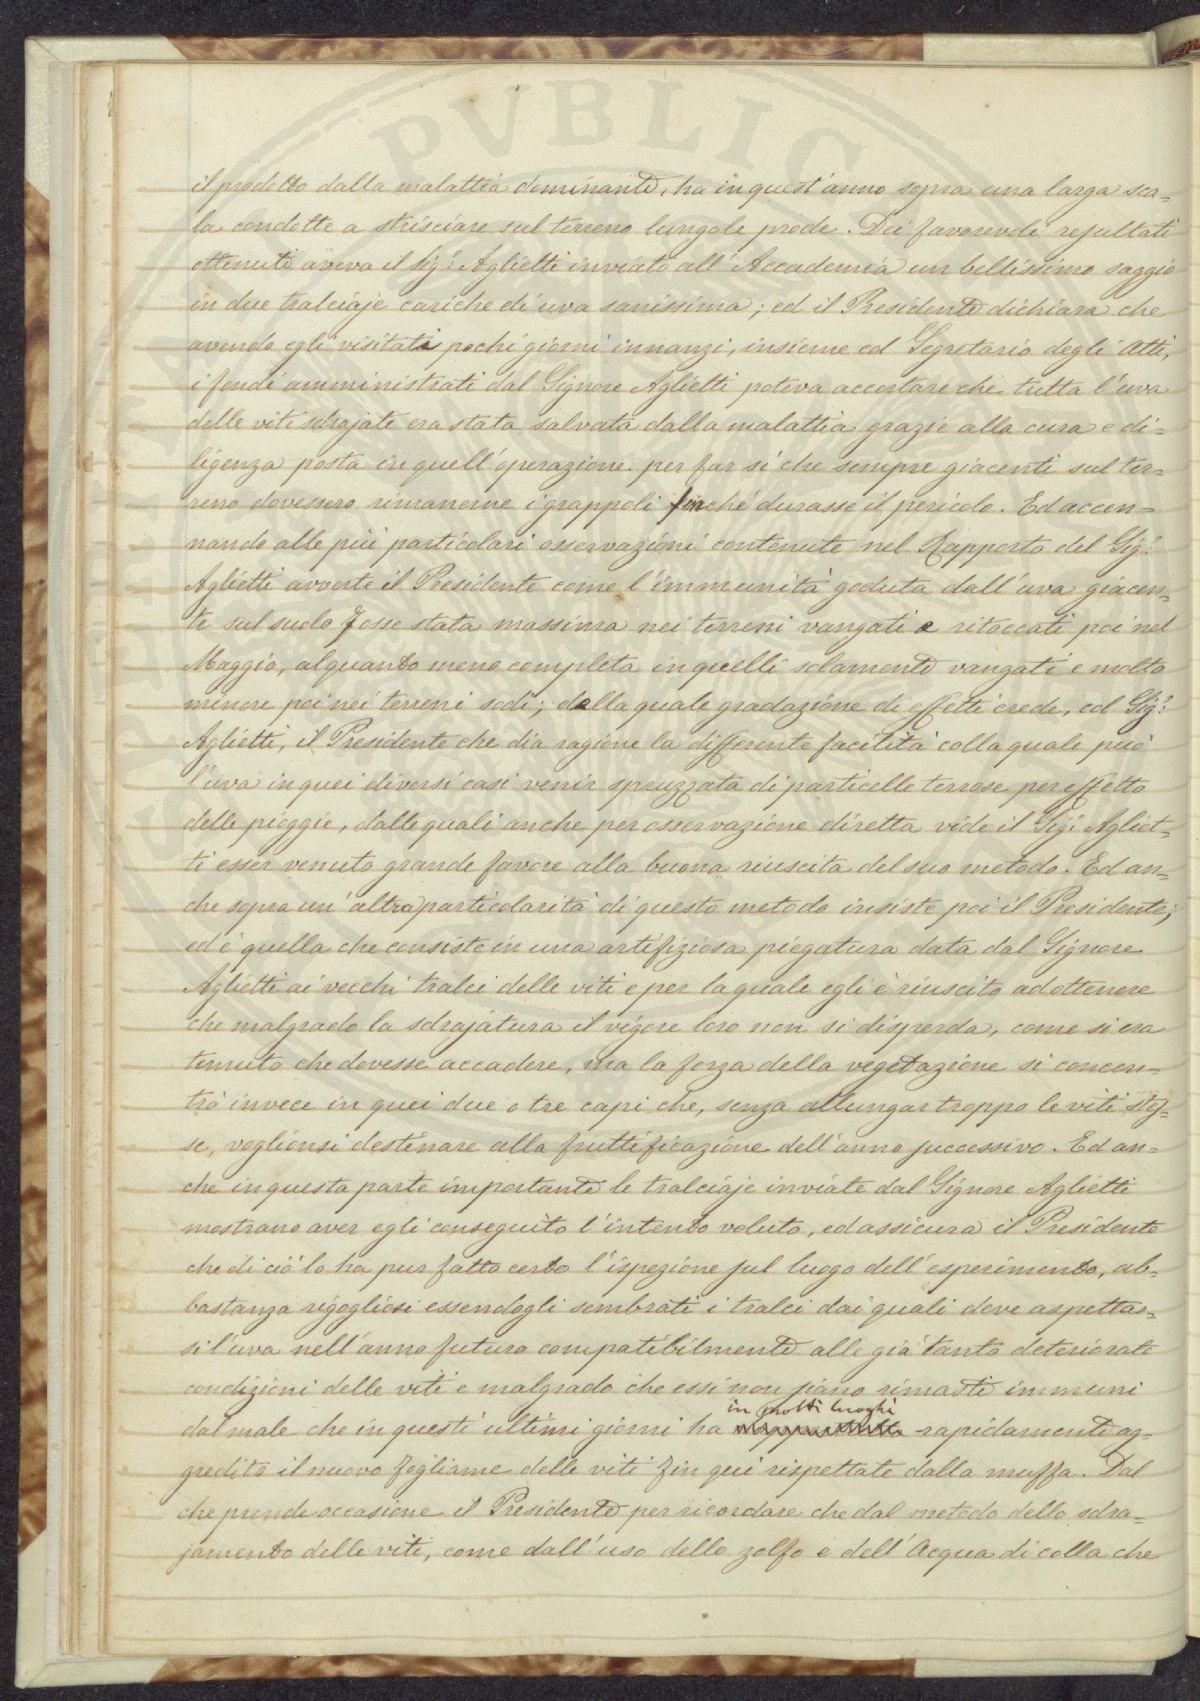 PVBLIC
il prodotto dalla malattia dominante, ha in quest'anno sopra una larga sca=
la condotte a strisciare sul terreno lungo le prode. Dei favorevoli resultati
ottenuti aveva il Sig.r Aglietti inviato all'Accademia un bellissimo saggio
in due tralciaje cariche di uva sanissima; ed il Presidente dichiara che
avendo egli visitati pochi giorni innanzi, insieme col Segretario degli Atti,
i fondi amministrati dal Signore Aglietti poteva accertare che tutta l'uva
delle viti sdrajate era stata salvata dalla malattia grazie alla cura e di=
ligenza posta in quell'operazione per far sì che sempre giacenti sul ter=
reno dovessero rimanerne i grappoli finchè durasse il pericolo. Ed accen=
nando alle più particolari osservazioni contenute nel Rapporto del Sig.r
Aglietti avverte il Presidente come l'immunità goduta dall'uva giacen=
te sul suolo fosse stata massima nei terreni vangati e ritoccati poi nel
Maggio, alquanto meno completa in quelli solamente vangati e molto
minore poi nei terreni sodi; della quale gradazione di effetti crede, col Sig.r
Aglietti, il Presidente che dia ragione la differente facilità colla quale può
l'uva in quei diversi casi venir spruzzata di particelle terrose per effetto
delle pioggie, dalle quali anche per osservazione diretta vide il Sig.r Agliet=
ti esser venuto grande favore alla buona riuscita del suo metodo. Ed an=
che sopra un'altra particolarità di questo metodo insiste poi il Presidente;
ed è quella che consiste in una artifiziosa piegatura data dal Signore
Aglietti ai vecchi tralci delle viti e per la quale egli è riuscito ad ottenere
che malgrado la sdrajatura il vigore loro non si disperda, come si era
temuto che dovesse accadere, ma la forza della vegetazione si concen=
trò invece in quei due o tre capi che, senza allungar troppo le viti stes=
se, voglionsi destinare alla fruttificazione dell'anno successivo. Ed an=
che in questa parte importante le tralciaje inviate dal Signore Aglietti
mostrano aver egli conseguito l'intento voluto, ed assicura il Presidente
che di ciò lo ha pur fatto certo l'ispezione sul luogo dell'esperimento, ab=
bastanza rigogliosi essendogli sembrati i tralci dai quali deve aspettar=
si l'uva nell'anno futuro compatibilmente alle già tanto deteriorate
condizioni delle viti e malgrado che essi non siano rimasti immuni
in molti luoghi
dal male che in questi ultimi giorni ha rapidamente ag=
gredito il nuovo fogliame delle viti fin qui rispettate dalla muffa. Dal
che prende occasione il Presidente per ricordare che dal metodo dello sdra=
jamento delle viti, come dall'uso dello zolfo e dell'Acqua di colla che